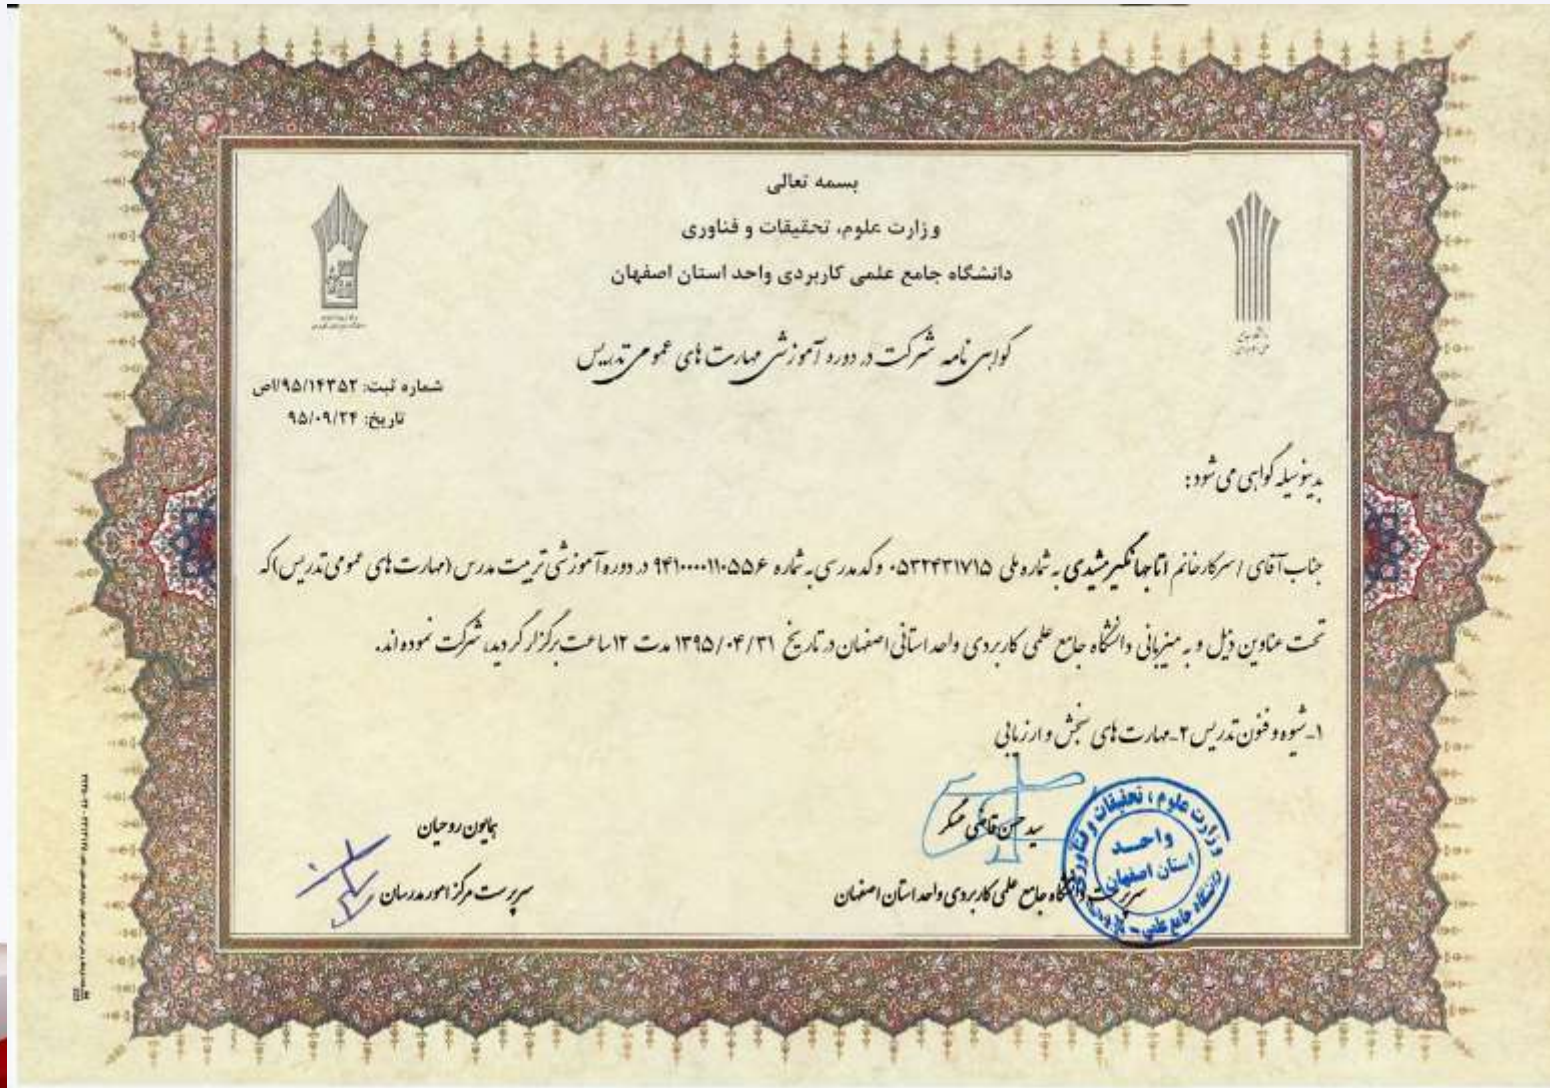 بسمه تعالی
وزارت علوم، تحقیقات و فناوری
دانشگاه جامع علمی کاربردی واحد استان اصفهان
گواهی نامه شرکت در دوره آموزشی مهارت های عمومی تدریس
شماره ثبت: ۹۵/۱۴۳۵۲/اص
تاریخ: ۹۵/۰۹/۲۴
بدینوسیله گواهی می شود:
جناب آقای / سرکار خانم به شماره ملی ۰۵۳۲۴۳۱۷۱۵ و کد مدرسی به شماره در دوره آموزشی تربیت مدرس (مهارت های عمومی تدریس) که
تحت عناوین ذیل و به میزبانی دانشگاه جامع علمی کاربردی واحد استانی اصفهان در تاریخ ۱۳۹۵/۰۴/۳۱ مدت ۱۲ ساعت برگزار گردید، شرکت نموده اند.
۱- شیوه و فنون تدریس ۲- مهارت های سنجش و ارزیابی
سید حسن قاضی عسکر
سرپرست دانشگاه جامع علمی کاربردی واحد استان اصفهان
همایون روحیان
سرپرست مرکز امور مدرسان
وزارت علوم، تحقیقات و فناوری
واحد
استان اصفهان
دانشگاه جامع علمی -